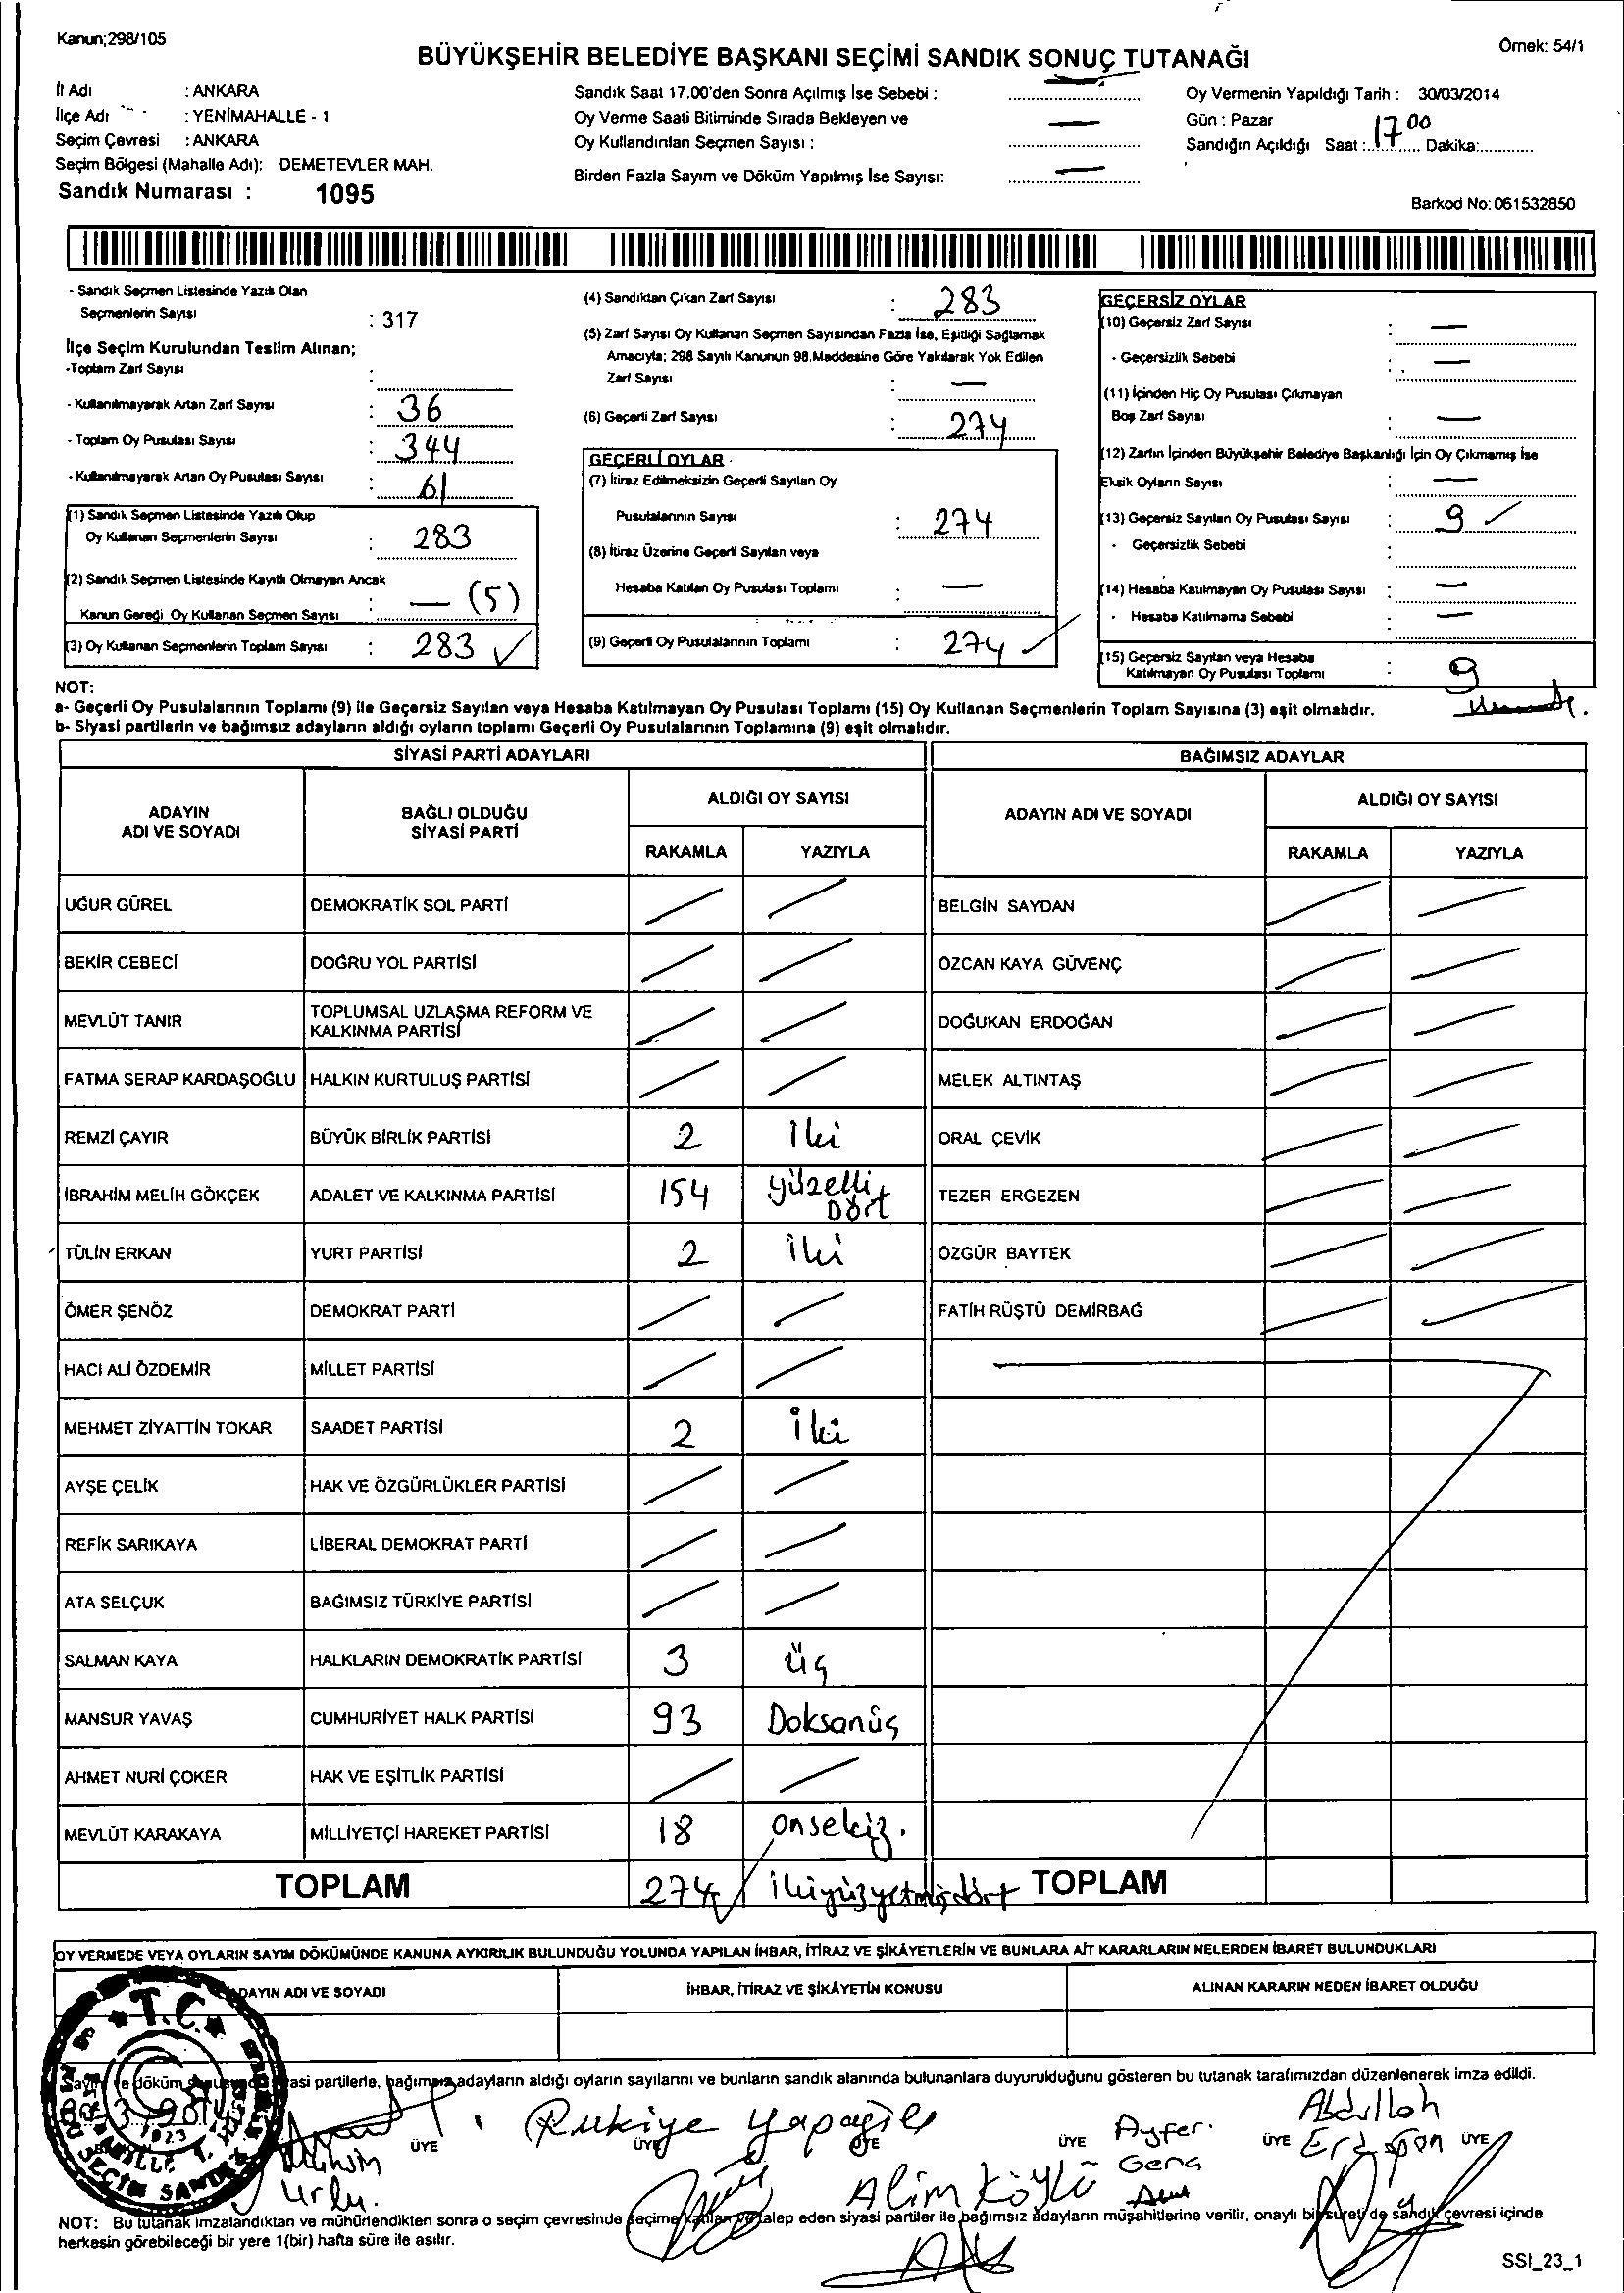 Kanun;298/105
Örnek: 54/1
BÜYÜKŞEHİR BELEDİYE BAŞKANI SEÇİMİ SANDIK SONUÇ TUTANAĞI
İl Adı : ANKARA
İlçe Adı : YENİMAHALLE - 1
Seçim Çevresi : ANKARA
Seçim Bölgesi (Mahalle Adı): DEMETEVLER MAH.
Sandık Numarası : 1095
Sandık Saat 17.00'den Sonra Açılmış İse Sebebi : —
Oy Verme Saati Bitiminde Sırada Bekleyen ve
Oy Kullandırılan Seçmen Sayısı : —
Birden Fazla Sayım ve Döküm Yapılmış İse Sayısı: —
Oy Vermenin Yapıldığı Tarih : 30/03/2014
Gün : Pazar
Sandığın Açıldığı Saat : 17 00 Dakika:
Barkod No: 061532850
- Sandık Seçmen Listesinde Yazılı Olan
Seçmenlerin Sayısı : 317
İlçe Seçim Kurulundan Teslim Alınan;
-Toplam Zarf Sayısı :
- Kullanılmayarak Artan Zarf Sayısı : 36
- Toplam Oy Pusulası Sayısı : 344
- Kullanılmayarak Artan Oy Pusulası Sayısı : 61
(1) Sandık Seçmen Listesinde Yazılı Olup
Oy Kullanan Seçmenlerin Sayısı : 283
(2) Sandık Seçmen Listesinde Kayıtlı Olmayan Ancak
Kanun Gereği Oy Kullanan Seçmen Sayısı : — (5)
(3) Oy Kullanan Seçmenlerin Toplam Sayısı : 283 ✓
(4) Sandıktan Çıkan Zarf Sayısı : 283
(5) Zarf Sayısı Oy Kullanan Seçmen Sayısından Fazla İse, Eşitliği Sağlamak
Amacıyla; 298 Sayılı Kanunun 98.Maddesine Göre Yakılarak Yok Edilen
Zarf Sayısı : —
(6) Geçerli Zarf Sayısı : 274
GEÇERLİ OYLAR
(7) İtiraz Edilmeksizin Geçerli Sayılan Oy
Pusulalarının Sayısı : 274
(8) İtiraz Üzerine Geçerli Sayılan veya
Hesaba Katılan Oy Pusulası Toplamı : —
(9) Geçerli Oy Pusulalarının Toplamı : 274 ✓
GEÇERSİZ OYLAR
(10) Geçersiz Zarf Sayısı : —
- Geçersizlik Sebebi : —
(11) İçinden Hiç Oy Pusulası Çıkmayan
Boş Zarf Sayısı : —
(12) Zarfın İçinden Büyükşehir Belediye Başkanlığı İçin Oy Çıkmamış İse
Eksik Oyların Sayısı : —
(13) Geçersiz Sayılan Oy Pusulası Sayısı : 9 ✓
- Geçersizlik Sebebi :
(14) Hesaba Katılmayan Oy Pusulası Sayısı : —
- Hesaba Katılmama Sebebi : —
(15) Geçersiz Sayılan veya Hesaba
Katılmayan Oy Pusulası Toplamı : 9
NOT:
a- Geçerli Oy Pusulalarının Toplamı (9) ile Geçersiz Sayılan veya Hesaba Katılmayan Oy Pusulası Toplamı (15) Oy Kullanan Seçmenlerin Toplam Sayısına (3) eşit olmalıdır.
b- Siyasi partilerin ve bağımsız adayların aldığı oyların toplamı Geçerli Oy Pusulalarının Toplamına (9) eşit olmalıdır.
SİYASİ PARTİ ADAYLARI
BAĞIMSIZ ADAYLAR
ADAYIN ADI VE SOYADI
BAĞLI OLDUĞU SİYASİ PARTİ
ALDIĞI OY SAYISI
RAKAMLA YAZIYLA
ADAYIN ADI VE SOYADI
ALDIĞI OY SAYISI
RAKAMLA YAZIYLA
UĞUR GÜREL DEMOKRATİK SOL PARTİ BELGİN SAYDAN
BEKİR CEBECİ DOĞRU YOL PARTİSİ ÖZCAN KAYA GÜVENÇ
MEVLÜT TANIR TOPLUMSAL UZLAŞMA REFORM VE KALKINMA PARTİSİ DOĞUKAN ERDOĞAN
FATMA SERAP KARDAŞOĞLU HALKIN KURTULUŞ PARTİSİ MELEK ALTINTAŞ
REMZİ ÇAYIR BÜYÜK BİRLİK PARTİSİ 2 İki ORAL ÇEVİK
İBRAHİM MELİH GÖKÇEK ADALET VE KALKINMA PARTİSİ 154 yüzelli Dört TEZER ERGEZEN
TÜLİN ERKAN YURT PARTİSİ 2 İki ÖZGÜR BAYTEK
ÖMER ŞENÖZ DEMOKRAT PARTİ FATİH RÜŞTÜ DEMİRBAĞ
HACI ALİ ÖZDEMİR MİLLET PARTİSİ
MEHMET ZİYATTİN TOKAR SAADET PARTİSİ 2 İki
AYŞE ÇELİK HAK VE ÖZGÜRLÜKLER PARTİSİ
REFİK SARIKAYA LİBERAL DEMOKRAT PARTİ
ATA SELÇUK BAĞIMSIZ TÜRKİYE PARTİSİ
SALMAN KAYA HALKLARIN DEMOKRATİK PARTİSİ 3 üç
MANSUR YAVAŞ CUMHURİYET HALK PARTİSİ 93 Doksanüç
AHMET NURİ ÇOKER HAK VE EŞİTLİK PARTİSİ
MEVLÜT KARAKAYA MİLLİYETÇİ HAREKET PARTİSİ 18 onsekiz.
TOPLAM 274 ✓ ikiyüzyetmişdört TOPLAM
OY VERMEDE VEYA OYLARIN SAYIM DÖKÜMÜNDE KANUNA AYKIRILIK BULUNDUĞU YOLUNDA YAPILAN İHBAR, İTİRAZ VE ŞİKÂYETLERİN VE BUNLARA AİT KARARLARIN NELERDEN İBARET BULUNDUKLARI
ADAYIN ADI VE SOYADI İHBAR, İTİRAZ VE ŞİKÂYETİN KONUSU ALINAN KARARIN NEDEN İBARET OLDUĞU
T.C.
1923
döküm partilerle, bağımsız adayların aldığı oyların sayılarını ve bunların sandık alanında bulunanlara duyurulduğunu gösteren bu tutanak tarafımızdan düzenlenerek imza edildi.
Rukiye Yapağılı Ayfer. Abdullah
ÜYE ÜYE ÜYE ÜYE ÜYE ÜYE
Alim Köylü Genç
NOT: Bu tutanak imzalandıktan ve mühürlendikten sonra o seçim çevresinde seçime katılan ve talep eden siyasi partiler ile bağımsız adayların müşahitlerine verilir, onaylı bir sureti de sandık çevresi içinde
herkesin görebileceği bir yere 1(bir) hafta süre ile asılır.
SSI_23_1